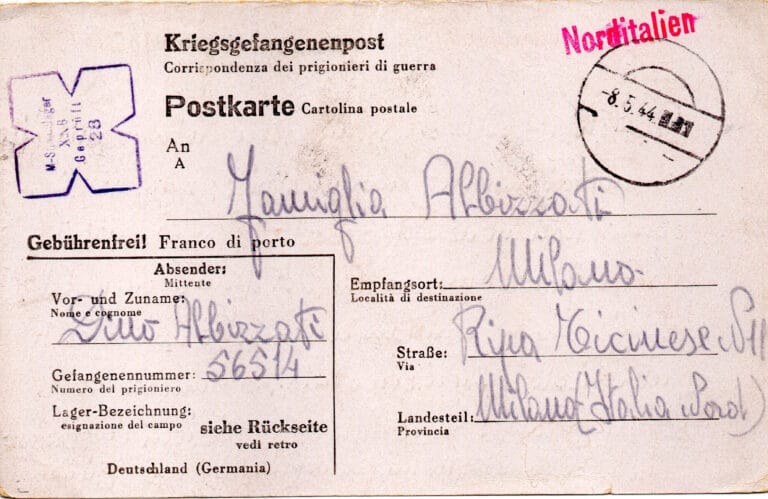 Norditalien
Kriegsgefangenenpost
Corrispondenza dei prigionieri di guerra
Postkarte Cartolina postale
-8.5.44
XXB
Geprüft
28
An
A
Famiglia Albizzati
Gebührenfrei! Franco di porto
Milano
Absender:
Mittente
Empfangsort:
Località di destinazione
Vor- und Zuname:
Nome e cognome
Dino Albizzati
Ripa Ticinese N 11
Straße:
Via
56514
Gefangenennummer:
Numero del prigioniero
Milano (Italia Nord)
Landesteil:
Provincia
Lager-Bezeichnung:
esignazione del campo
siehe Rückseite
vedi retro
Deutschland (Germania)